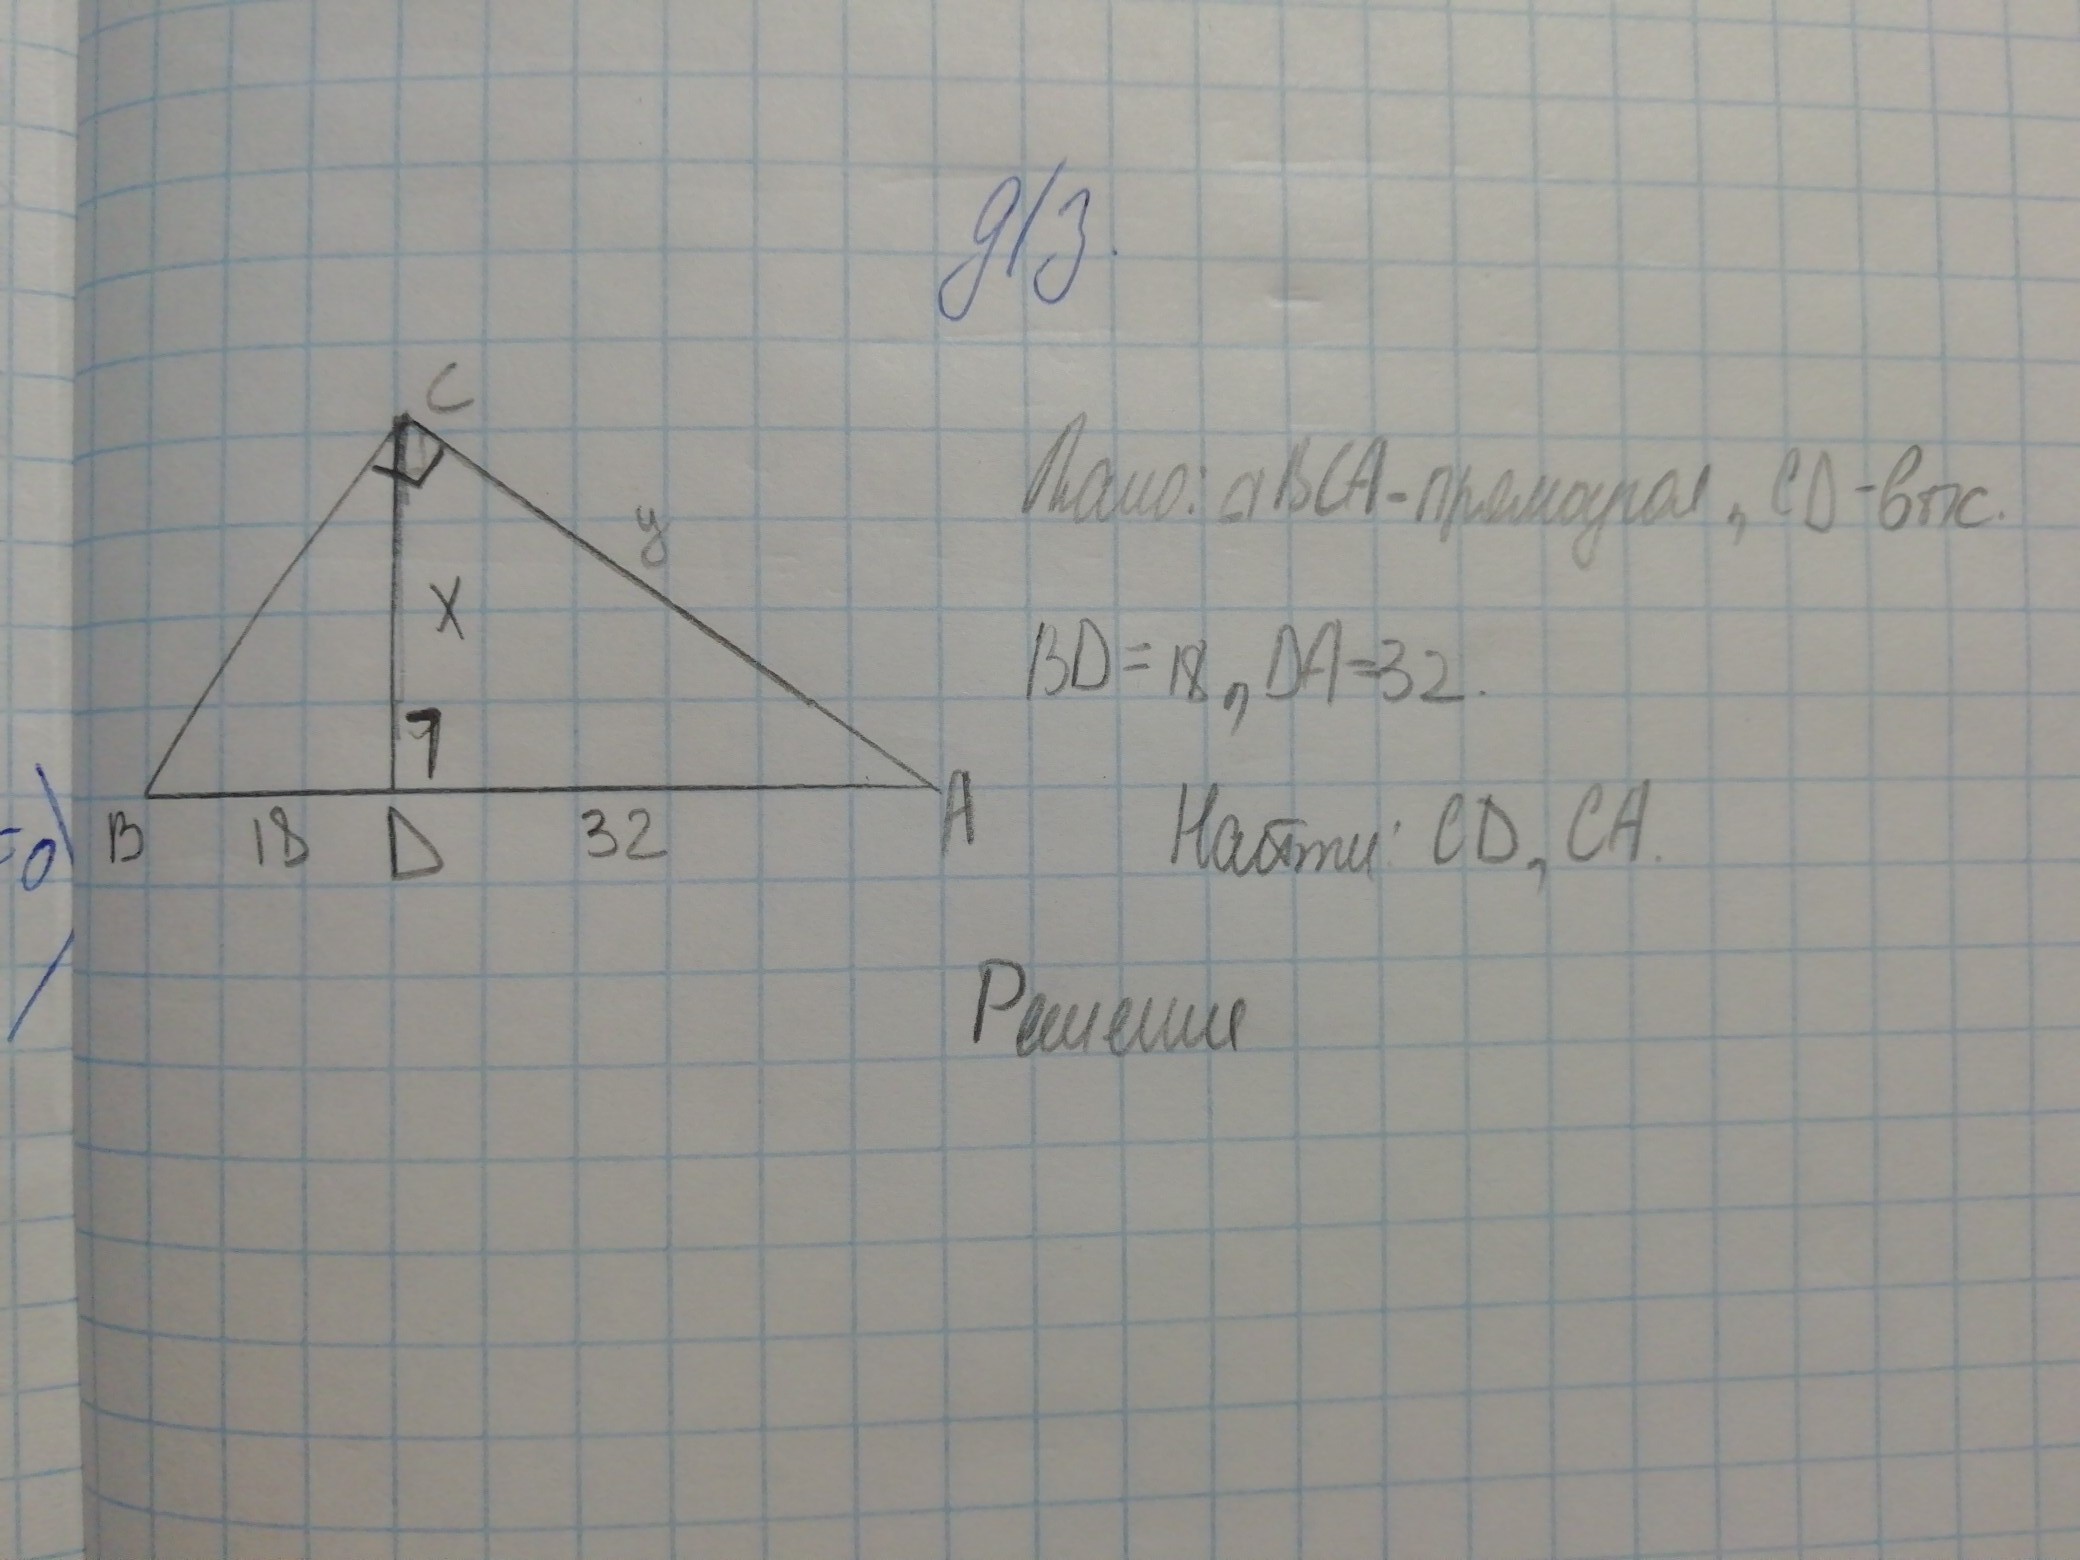 д/з.
C
Дано: △BCA-прямоугол, CD-выс.
y
X
BD=18, DA=32.
B 18 D 32 A
Найти: CD, CA.
=0
Решение